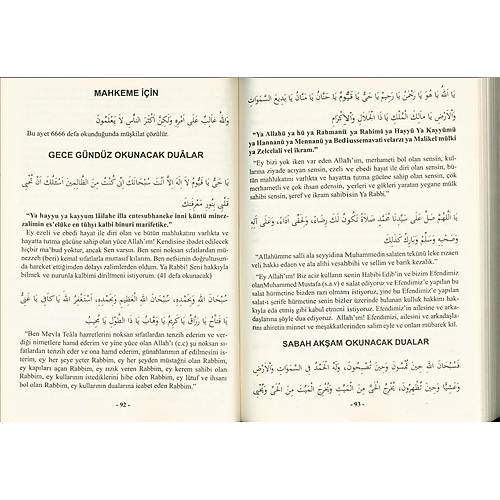 MAHKEME İÇİN
وَاللّٰهُ غَالِبٌ عَلٰى اَمْرِهِ وَلٰكِنَّ اَكْثَرَ النَّاسِ لَا يَعْلَمُونَ
Bu ayet 6666 defa okunduğunda müşkilat çözülür.
GECE GÜNDÜZ OKUNACAK DUÂLAR
يَا حَىُّ يَا قَيُّومُ لَا اِلٰهَ اِلَّا اَنْتَ سُبْحَانَكَ اِنِّى كُنْتُ مِنَ الظَّالِمِينَ اَسْئَلُكَ اَنْ تُحْيِىَ
قَلْبِى بِنُورِ مَعْرِفَتِكَ
"Ya hayyu ya kayyum lâilahe illa entesubhaneke inni küntü minez-
zalimîn es'elüke en tühyi kalbi binuri marifetike."
Ey ezeli ve ebedi hayat ile diri olan ve bütün mahlukatını varlıkta ve
hayatta tutma gücüne sahip olan yüce Allah'ım! Kendisine ibadet edilecek
hiçbir ma'bud yoktur, ancak Sen varsın. Ben seni noksan sıfatlardan mü-
nezzeh (beri) kemal sıfatlarla muttasıf kılarım. Ben nefsimin doğrultusun-
da hareket ettiğimden dolayı zalimlerden oldum. Ya Rabbi! Seni hakkıyla
bilmek ve envarınla kalbimi ihya etmeni istiyorum. (41 defa okunacak)
سُبْحَانَ اللّٰهِ وَبِحَمْدِهِ، سُبْحَانَ اللّٰهِ الْعَظِيمِ وَبِحَمْدِهِ، اَسْتَغْفِرُ اللّٰهَ يَا كَافِى يَا غَنِىُّ
يَا فَتَّاحُ يَا رَزَّاقُ يَا كَرِيمُ يَا وَهَّابُ يَا ذَا الطَّوْلِ يَا مُجِيبُ
"Ben Mevla Teâla hazretlerini noksan sıfatlardan tenzih ederim ve ver-
diği nimetlere hamd ederim ve yine yüce olan Allah'ı (c.c) şu noksan sı-
fatlardan tenzih eder ve ona hamd ederim, günahlarımın af edilmesini is-
terim, ey her şeye yeter Rabbim, ey her şeyden müstağni olan Rabbim,
ey kapıları açan Rabbim, ey rızık veren Rabbim, ey kerem sahibi olan
Rabbim, ey kullarının istediklerini hibe eden Rabbim, ey lütuf ve ihsanı
bol olan Rabbim, ey kullarının dualarını icabet eden Rabbim."
- 92 -
يَا اَللّٰهُ يَا هُوَ يَا رَحْمٰنُ يَا رَحِيمُ يَا حَىُّ يَا قَيُّومُ يَا حَنَّانُ يَا مَنَّانُ يَا بَدِيعَ السَّمٰوَاتِ
وَالْاَرْضِ يَا مَالِكَ الْمُلْكِ يَا ذَا الْجَلَالِ وَالْاِكْرَامِ
"Ya Allahü ya hü ya Rahmanü ya Rahimü ya Hayyü Ya Kayyümü
ya Hannanü ya Mennanu ya Bediussemavati velarzı ya Malikel mülki
ya Zelcelali vel ikram."
"Ey bizi yok iken var eden Allah'ım, merhameti bol olan sensin, kul-
larına ziyade acıyan sensin, ezeli ve ebedi hayat ile diri olan sensin, bü-
tün mahlukatını varlıkta ve hayatta tutma gücüne sahip olan sensin, çok
merhametli ve çok ihsan edensin, yerleri ve gökleri yaratan yegane mülk
sahibi sensin, şeref ve ikram sahibisin Ya Rabbi."
يَا اَللّٰهُمَّ صَلِّ عَلٰى سَيِّدِنَا مُحَمَّدٍ صَلَاةً تَكُونُ لَكَ رِضَاءً، وَلِحَقِّهِ اَدَاءً، وَعَلٰى اٰلِهِ
وَصَحْبِهِ وَسَلِّمْ وَبَارِكْ كَذٰلِكَ
"Allahümme salli ala seyyidina Muhammedin salaten tekünü leke rızaen
ve li hakkıhi edaen ve ala alihi vesahbihi ve sellim ve barik kezalik."
"Ey Allah'ım! Biz aciz kulların senin Habibi Edib'in ve bizim Efendimiz
olan Muhammed Mustafa (s.a.v) e salat ediyoruz ve Efendimiz'e yapılan bu
salatın senin rızana bizleri nail etmesini istiyoruz, yine bu yapılan salat-
ı şerife hürmetine senin bizler üzerinde bulunan kulluk hakkını hak-
kıyla eda etmiş gibi kabul etmeni istiyoruz. Efendimiz'in ailesine ve arka-
daşlarına şöyle dua ediyoruz. Allah'ım! Efendimizin ailesine ve arkadaşla-
rını ahiretin minnet ve meşakkatlerinden salim eyle ve onları mübarek kıl.
SABAH AKŞAM OKUNACAK DUALAR
فَسُبْحَانَ اللّٰهِ حِينَ تُمْسُونَ وَحِينَ تُصْبِحُونَ، وَلَهُ الْحَمْدُ فِى السَّمٰوَاتِ وَالْاَرْضِ
وَعَشِيًّا وَحِينَ تُظْهِرُونَ، يُخْرِجُ الْحَىَّ مِنَ الْمَيِّتِ وَيُخْرِجُ الْمَيِّتَ مِنَ الْحَىِّ وَيُحْيِى
- 93 -